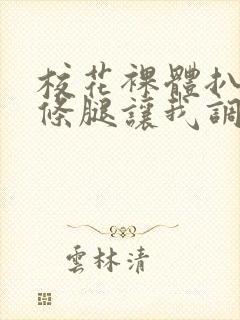 校花裸體扒
條腿讓我調
雲林清